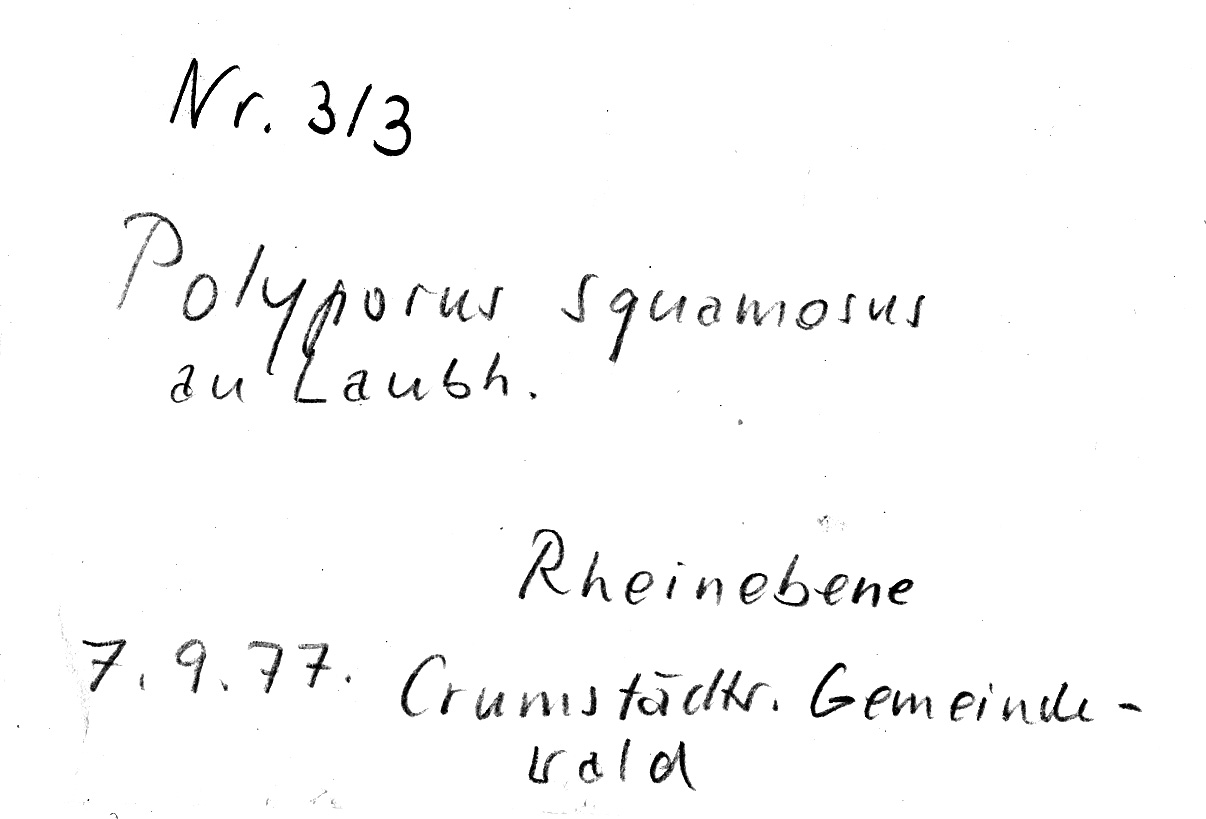 Nr. 3/3
Polyporus squamosus
an Laubh.
Rheinebene
7.9.77. Crumstädtr. Gemeinde-
wald